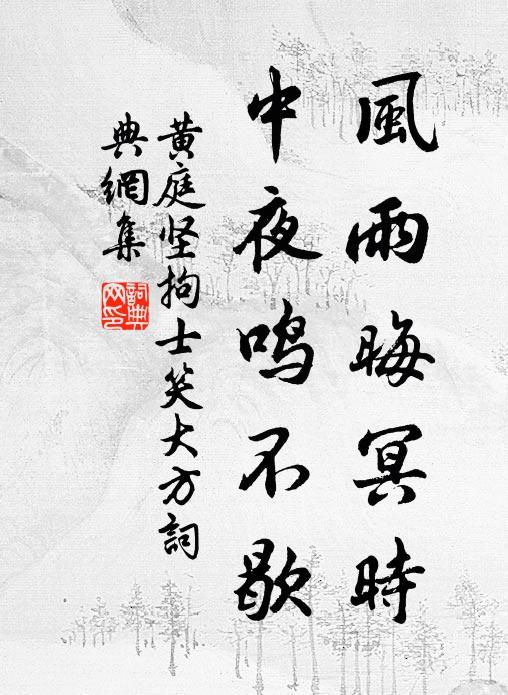 風雨晦冥時
中夜鸣不歇
黄庭坚拘士笑大方詞
典網集
詞典
网印